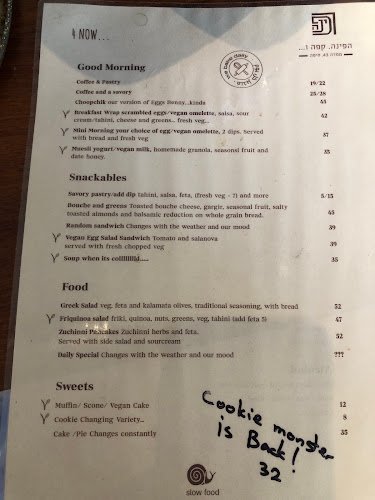 & NOW...
הפינה. קפה ו...
Good Morning
Coffee & Pastry 19/22
Coffee and a savory 25/28
Choopchik our version of Eggs Benny...kinda 43
Breakfast Wrap scrambled eggs/vegan omelette, salsa, sour 42
cream/tahini, cheese and greens.. fresh veg...
Mini Morning your choice of egg/vegan omelette, 2 dips. Served 37
with bread and fresh veg
Muesli yogurt/vegan milk, homemade granola, seasonsl fruit and 35
date honey.
Snackables
Savory pastry/add dip tahini, salsa, feta, (fresh veg - 7) and more 5/15
Bouche and greens Toasted bouche cheese, gargir, seasonal fruit, salty 45
toasted almonds and balsamic reduction on whole grain bread.
Random sandwich Changes with the weather and our mood 39
Vegan Egg Salad Sandwich Tomato and salanova 39
served with fresh chopped veg
Soup when its colllllllld..... 35
Food
Greek Salad veg, feta and kalamata olives, traditional seasoning, with bread 52
Friquinoa salad friki, quinoa, nuts, greens, veg, tahini (add feta 5) 47
Zuchinni Pancakes Zuchinni herbs and feta. 52
Served with side salad and sourcream
Daily Special Changes with the weather and our mood ???
Sweets
Muffin/ Scone/ Vegan Cake 12
Cookie Changing Variety.. 8
Cake /Pie Changes constantly 35
Cookie monster
is Back!
32
slow food